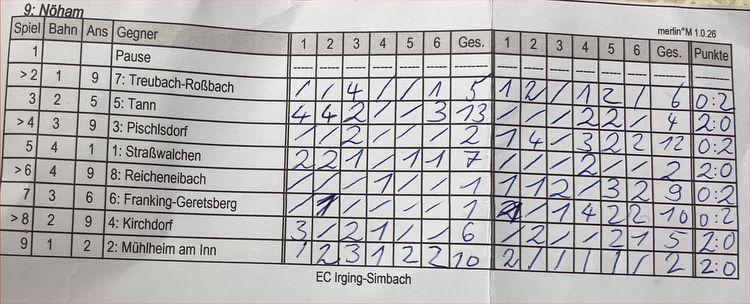 9: Nöham
merlin°M 1.0.26
Spiel Bahn Ans Gegner 1 2 3 4 5 6 Ges. 1 2 3 4 5 6 Ges. Punkte
1 Pause ----- ----- ----- ----- ----- ----- ----- ----- ----- ----- ----- ----- ----- ----- -----
> 2 1 9 7: Treubach-Roßbach / / 4 / / 1 5 1 2 / 1 2 / 6 0:2
3 2 5 5: Tann 4 4 2 / / 3 13 / / / 2 2 / 4 2:0
> 4 3 9 3: Pischlsdorf / / 2 / / / 2 1 4 / 3 2 2 12 0:2
5 4 1 1: Straßwalchen 2 2 1 / 1 1 7 / / / 2 / / 2 2:0
> 6 4 9 8: Reicheneibach / / / 1 / / 1 1 1 2 / 3 2 9 0:2
7 3 6 6: Franking-Geretsberg / 1 / / / / 1 / 1 4 2 2 10 0:2
> 8 2 9 4: Kirchdorf 3 / 2 1 / / 6 / 2 / / 2 1 5 2:0
9 1 2 2: Mühlheim am Inn / 2 3 1 2 2 10 2 / / / / / 2 2:0
EC Irging-Simbach